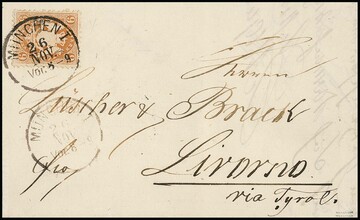 MÜNCHEN I
26
NOV
Vor. 5
Herren
Lüscher & Brack
Livorno
via Tyrol.